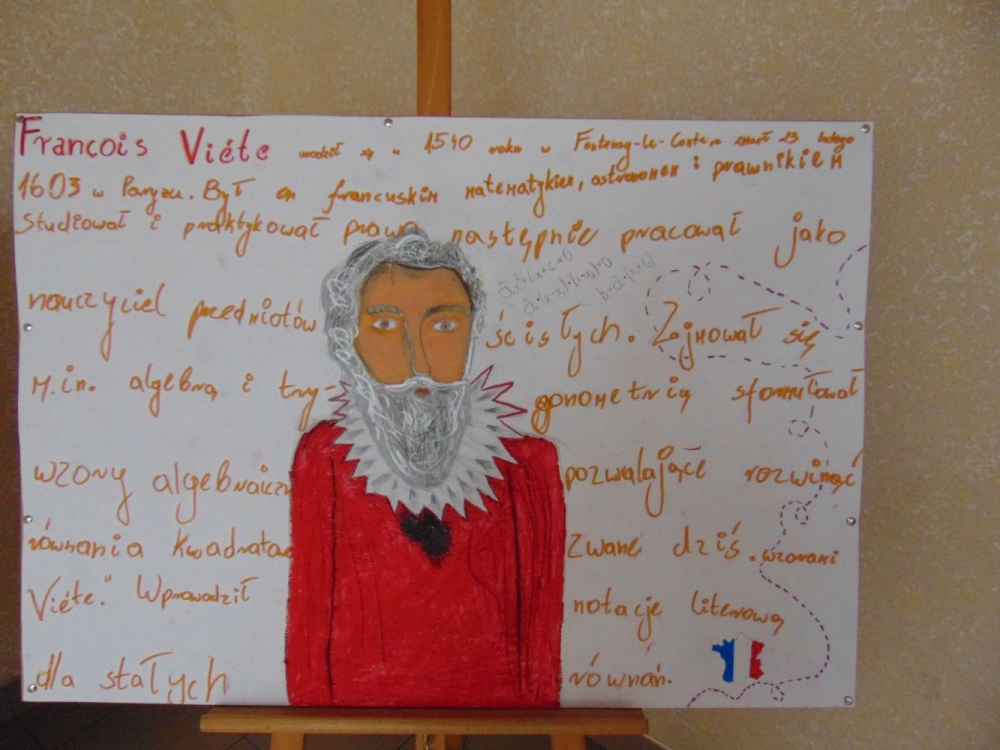 François Viéte urodził się w 1540 roku w Fontenay-le-Comte, zmarł 23 lutego
1603 w Paryżu. Był on francuskim matematykiem, astronomem i prawnikiem
Studiował i praktykował prawo następnie pracował jako
nauczyciel przedmiotów ścisłych. Zajmował się
m.in. algebrą i try- gonometrią sformułował
wzory algebraiczn pozwalające rozwinąć
równania kwadratow zwane dziś „wzorami
Viéte." Wprowadził notacje literową
dla stałych równań.
ax²+bx+c=0